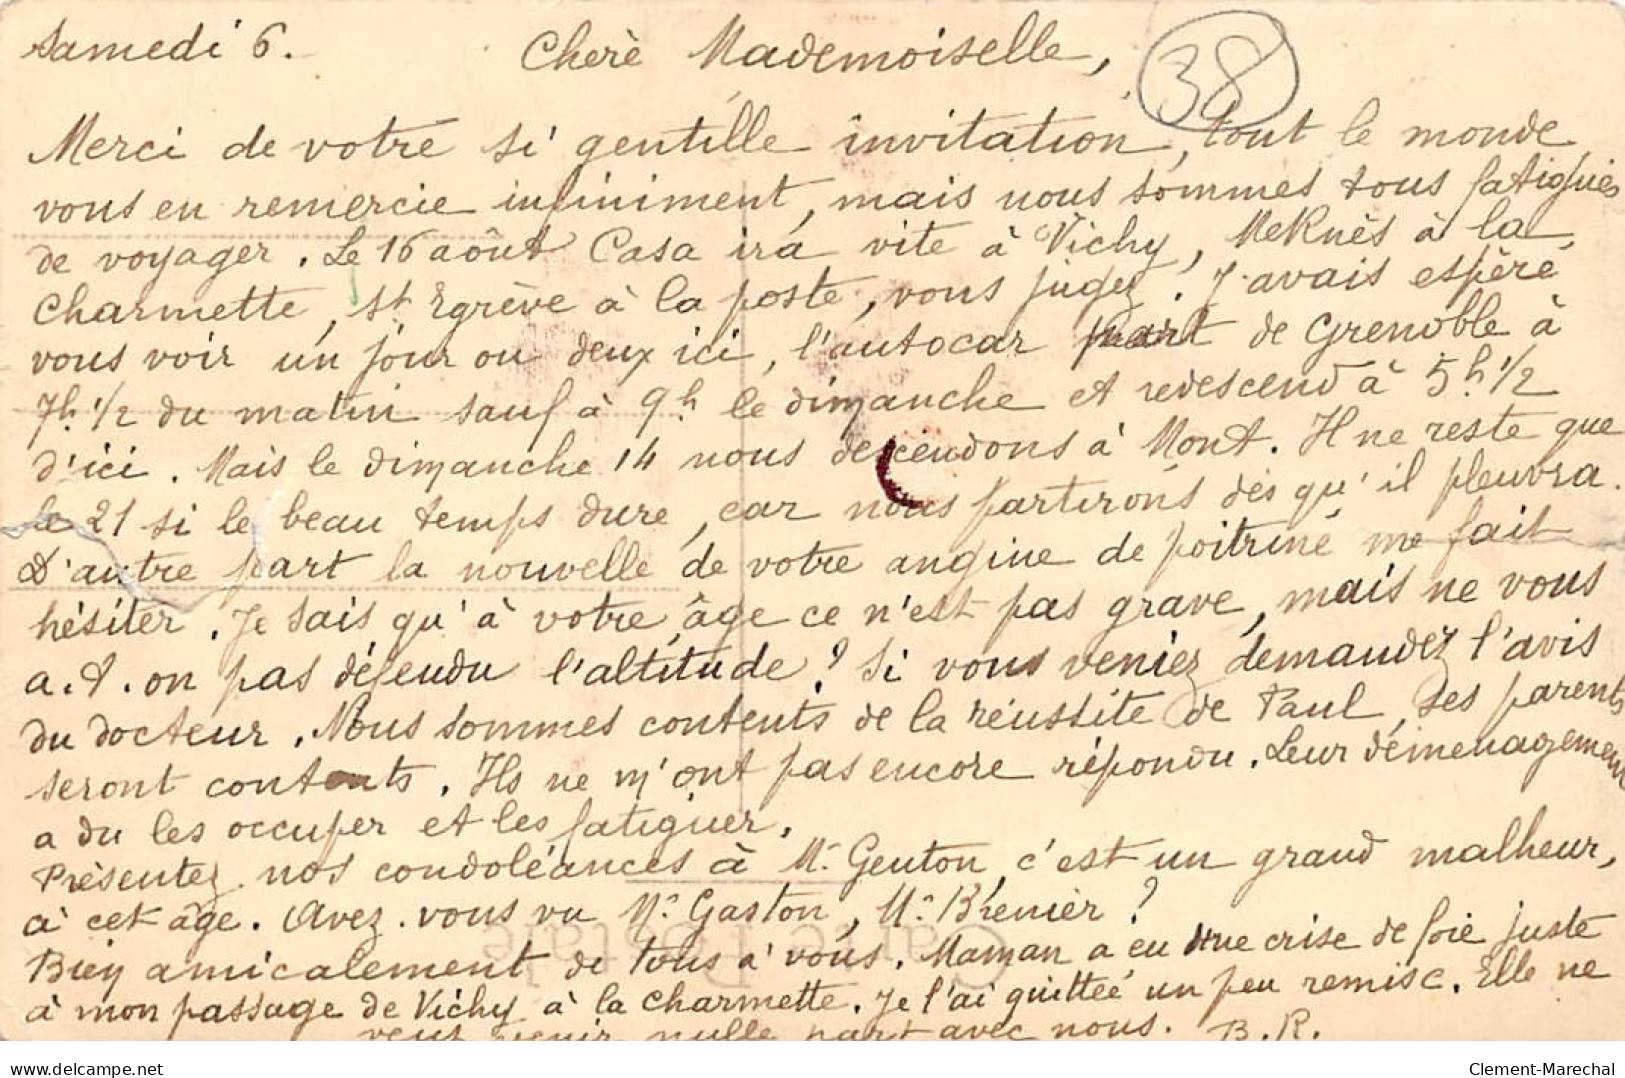 Samedi 6. Chère Mademoiselle, 38
Merci de votre si gentille invitation, tout le monde
vous en remercie infiniment, mais nous sommes tous fatigués
de voyager. Le 16 août Casa ira vite à Vichy, Meknès à la
Charmette, St Egrève à la poste, vous jugez. J'avais espéré
vous voir un jour ou deux ici, l'autocar part de Grenoble à
7h 1/2 du matin sauf à 9h le dimanche et redescend à 5h 1/2
d'ici. Mais le dimanche 14 nous descendons à Mont. Il ne reste que
le 21 si le beau temps dure, car nous partirons dès qu'il pleuvra.
D'autre part la nouvelle de votre angine de poitrine me fait
hésiter. Je sais qu'à votre âge ce n'est pas grave, mais ne vous
a.t.on pas défendu l'altitude? Si vous veniez demandez l'avis
du docteur. Nous sommes contents de la réussite de Paul, ses parents
seront contents. Ils ne m'ont pas encore répondu. Leur déménagement
a du les occuper et les fatiguer.
Présentez nos condoléances à Mr Genton, c'est un grand malheur,
à cet âge. Avez-vous vu Mr Gaston, Mr Brenier?
Bien amicalement de tous à vous. Maman a eu une crise de foie juste
à mon passage de Vichy à la Charmette. Je l'ai quittée un peu remise. Elle ne
veut venir nulle part avec nous. B.R.
Carte Postale
delcampe.net
Clement-Marechal